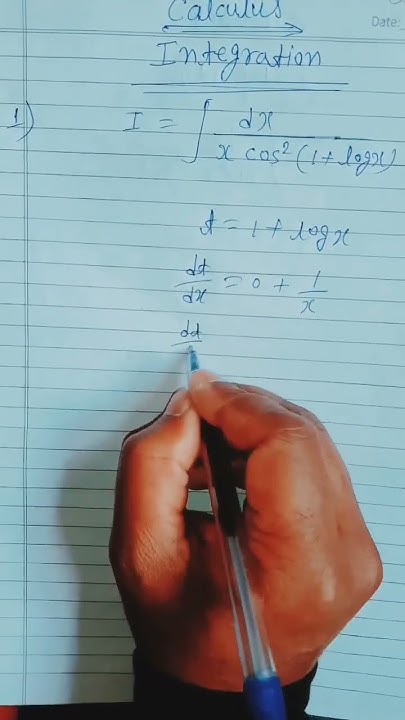 Calculus
Date:
Integration
1) I = ∫ dx / x cos² (1 + logx)
t = 1 + logx
dt/dx = 0 + 1/x
dt